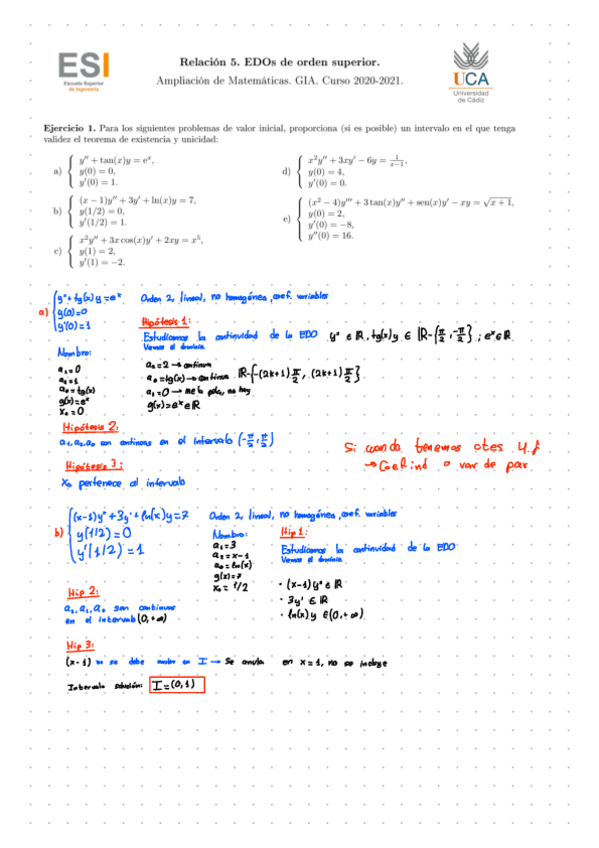 ESI
Escuela Superior
de Ingeniería
Relación 5. EDOs de orden superior.
Ampliación de Matemáticas. GIA. Curso 2020-2021.
UCA
Universidad
de Cádiz
Ejercicio 1. Para los siguientes problemas de valor inicial, proporciona (si es posible) un intervalo en el que tenga
validez el teorema de existencia y unicidad:
a) { y'' + tan(x)y = eˣ,
y(0) = 0,
y'(0) = 1.
b) { (x − 1)y'' + 3y' + ln(x)y = 7,
y(1/2) = 0,
y'(1/2) = 1.
c) { x²y'' + 3x cos(x)y' + 2xy = x⁵,
y(1) = 2,
y'(1) = −2.
d) { x²y'' + 3xy' − 6y = 1/(x−1),
y(0) = 4,
y'(0) = 0.
e) { (x² − 4)y''' + 3 tan(x)y'' + sen(x)y' − xy = √(x + 1),
y(0) = 2,
y'(0) = −8,
y''(0) = 16.
a) { y''+tg(x)y=eˣ Orden 2, lineal, no homogénea, coef. variables
y(0)=0
y'(0)=1
Hipótesis 1:
Estudiamos la continuidad de la EDO y'' ∈ ℝ, tg(x)y ∈ ℝ-{π/2, -π/2}; eˣ∈ℝ
Vemos el dominio
Nombro:
a₁=0
a₂=1
a₀=tg(x)
g(x)=eˣ
x₀=0
a₂=2→continua
a₀=tg(x)→continua ℝ-{-(2k+1)π/2, (2k+1)π/2}
a₁=0→ no hay
g(x)=eˣ∈ℝ
Hipótesis 2:
a₁,a₂,a₀ son continuas en el intervalo (-π/2, π/2)
Hipótesis 3:
x₀ pertenece al intervalo
Si cuando tenemos ctes
→ Coef ind o var de par
b) { (x-1)y''+3y'+ln(x)y=7 Orden 2, lineal, no homogénea, coef. variables
y(1/2)=0
y'(1/2)=1
Nombro:
a₁=3
a₂=x-1
a₀=ln(x)
g(x)=7
x₀=1/2
Hip 1:
Estudiamos la continuidad de la EDO
Vemos el dominio
· (x-1)y''∈ℝ
· 3y' ∈ ℝ
· ln(x)y ∈(0,+∞)
Hip 2:
a₁,a₂,a₀ son continuas
en el intervalo (0,+∞)
Hip 3:
(x-1) no se debe anular en I → Se anula en x=1, no se incluye
Intervalo solución: I=(0,1)